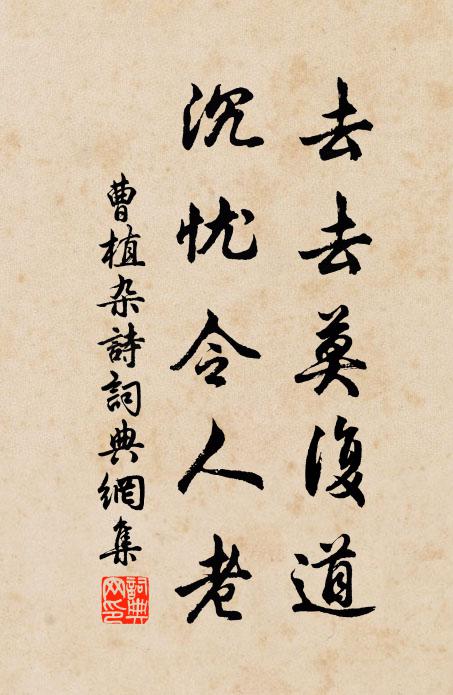 去去莫復道
沉忧令人老
曹植杂詩詞典網集
詞典
网印